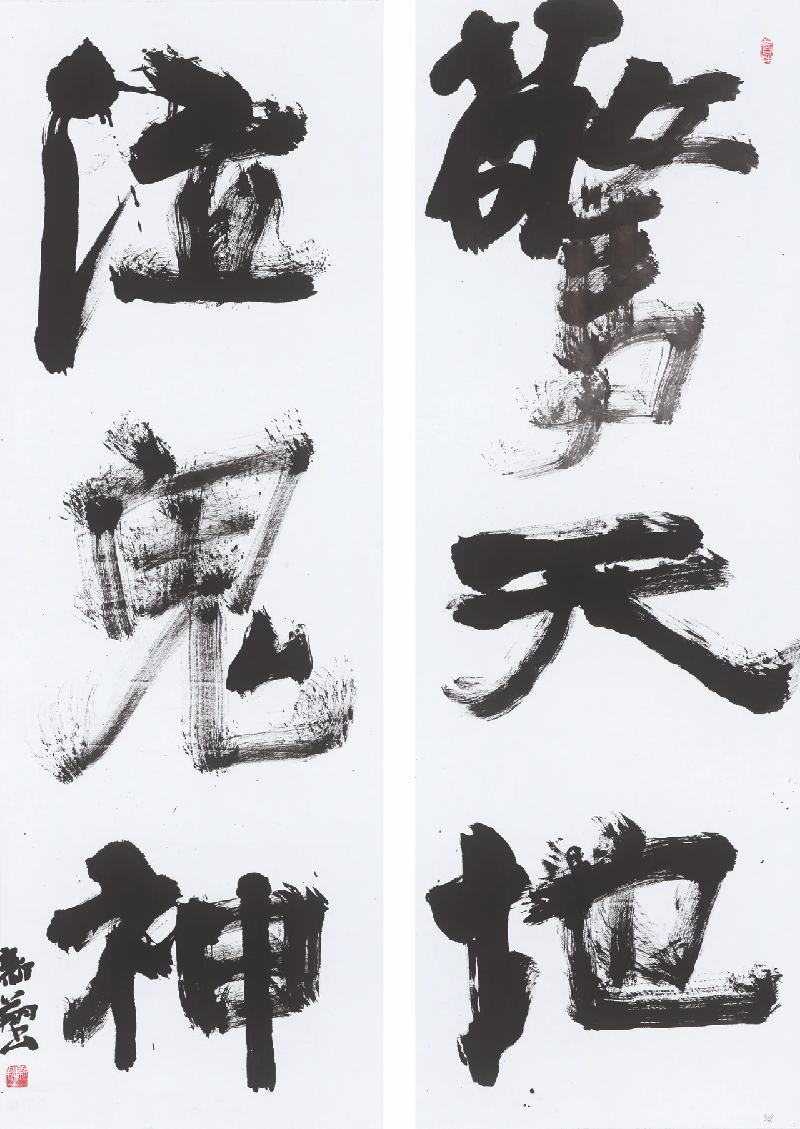 驚天地
泣鬼神